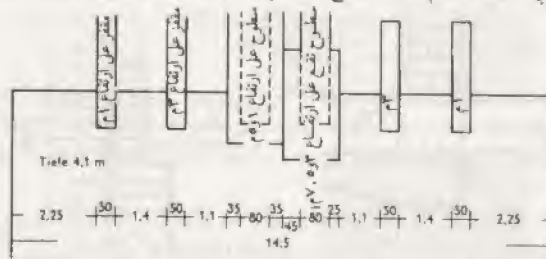 مقفز على ارتفاع ١م
مقفز على ارتفاع ٣م
سطوح على ارتفاع
سطوح تقع على ارتفاع
٣م
١م
Tiefe 4,1 m
2,25 50 1,4 50 1,1 35 80 35 45 80 25 1,1 50 1,4 50 2,25
14,5